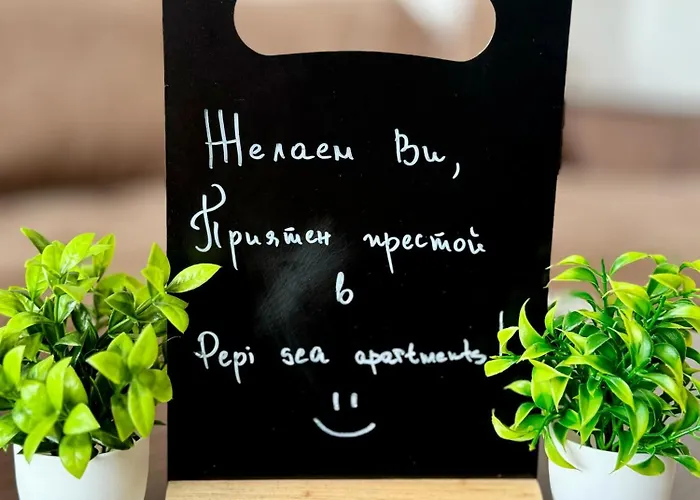 Желаем Ви,
Приятен престой
в
Pepi sea apartments!